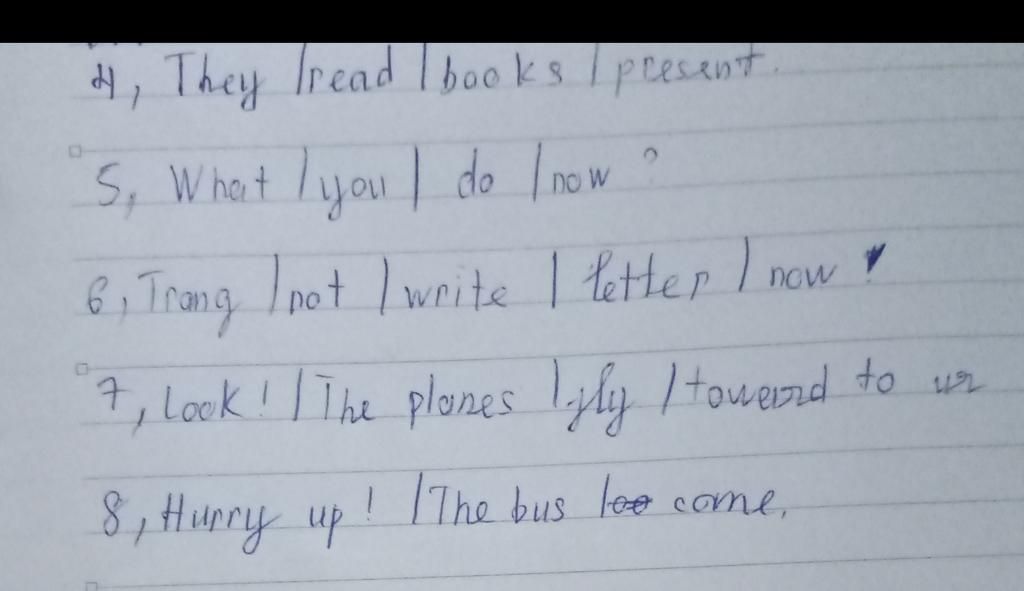 4, They / read / books / present.
5, What / you / do / now ?
6, Trang / not / write / letter / now
7, Look! / The planes / fly / toward to us
8, Hurry up! / The bus / come.